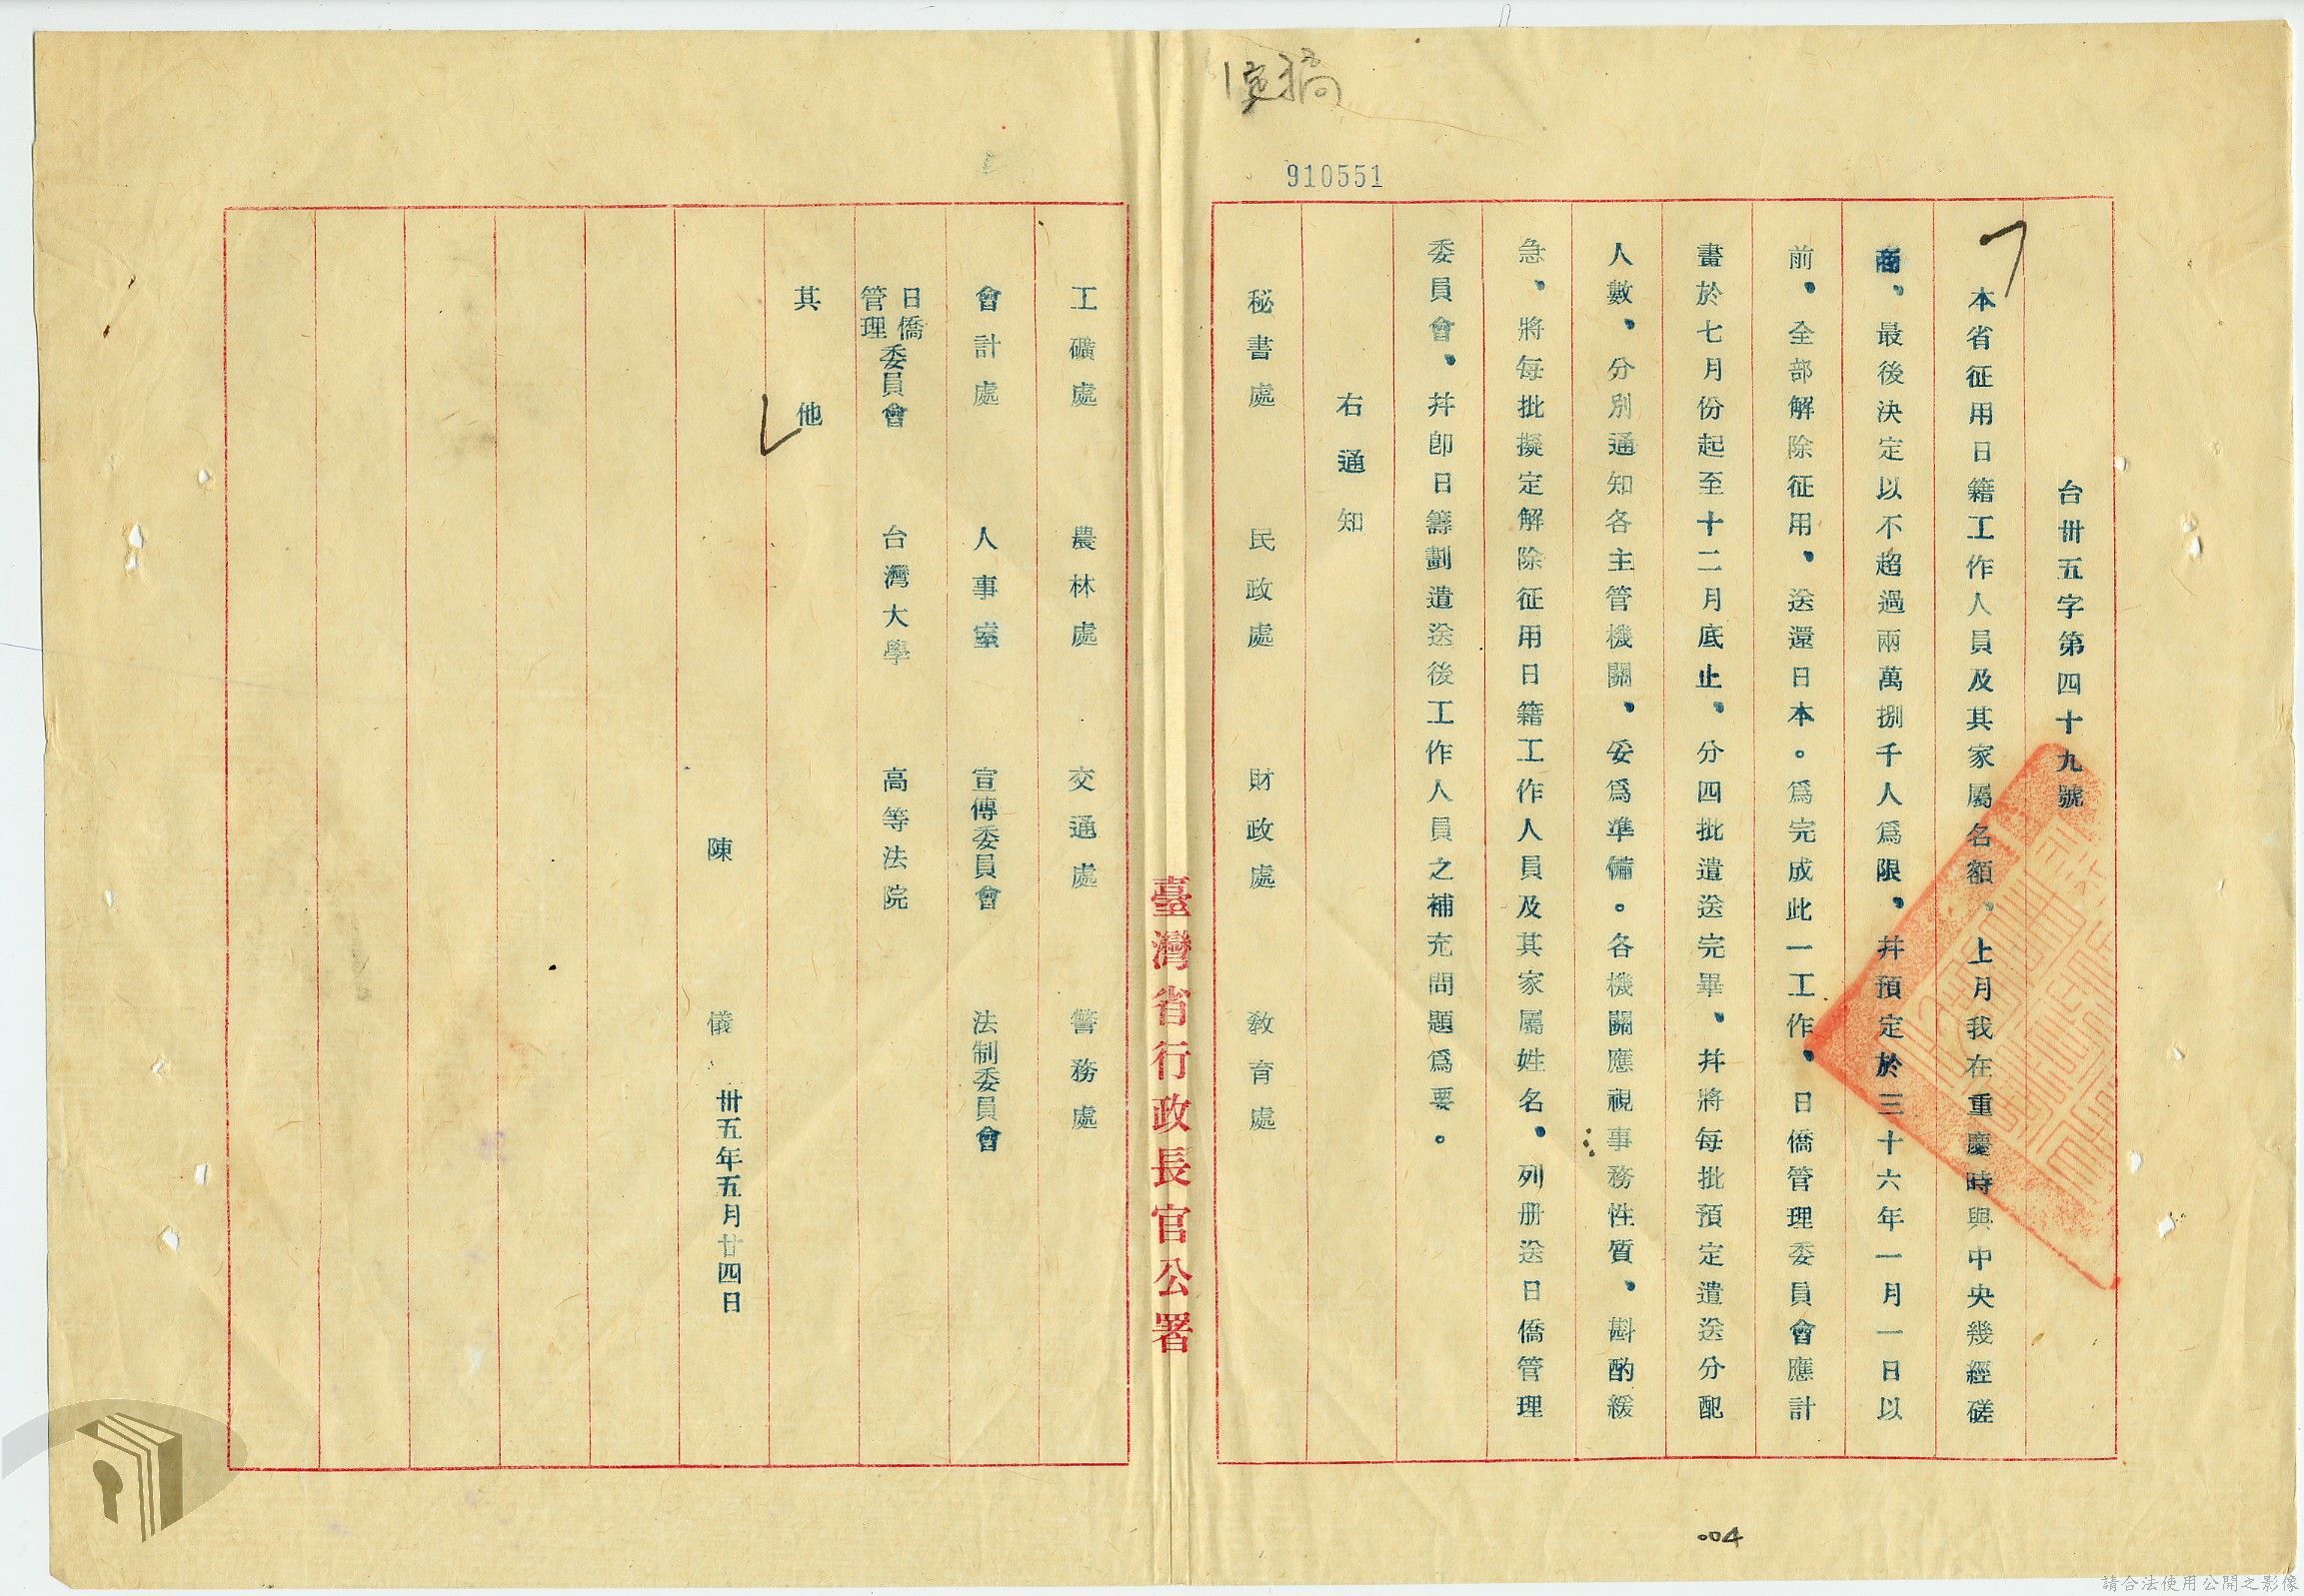 稿
910551
台卅五字第四十九號
本省征用日籍工作人員及其家屬名額、上月我在重慶時與中央幾經磋
商、最後決定以不超過兩萬捌千人爲限、幷預定於三十六年一月一日以
前、全部解除征用、送還日本。爲完成此一工作、日僑管理委員會應計
畫於七月份起至十二月底止、分四批遣送完畢、幷將每批預定遣送分配
人數、分別通知各主管機關、妥爲準備。各機關應視事務性質、斟酌緩
急、將每批擬定解除征用日籍工作人員及其家屬姓名、列册送日僑管理
委員會、幷卽日籌劃遣送後工作人員之補充問題爲要。
右通知
秘書處 民政處 財政處 敎育處
臺灣省行政長官公署
工礦處 農林處 交通處 警務處
會計處 人事室 宣傳委員會 法制委員會
日僑管理委員會 台灣大學 高等法院
其他
陳儀 卅五年五月廿四日
004
請合法使用公開之影像